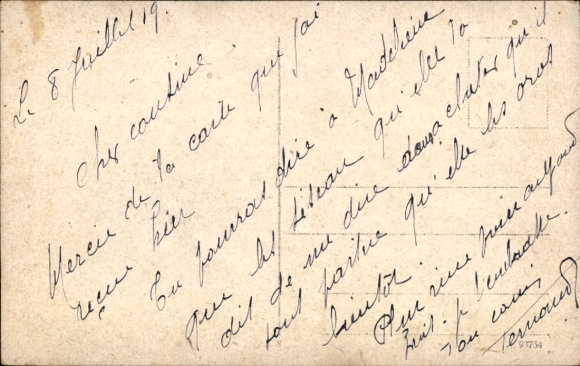 Le 8 Juillet 19
Cher cousine,
Mercie de ta carte que j'ai
reçue hier
Tu pourras dire à Madeleine
que les ciseau qu'elle ta
dit de me dire d'acheter qu'il
sont partue qu'elle les oras
bientôt.
Plus rien aujourd
huit. je t'embrasse
Ton cousin
Fernand
93754